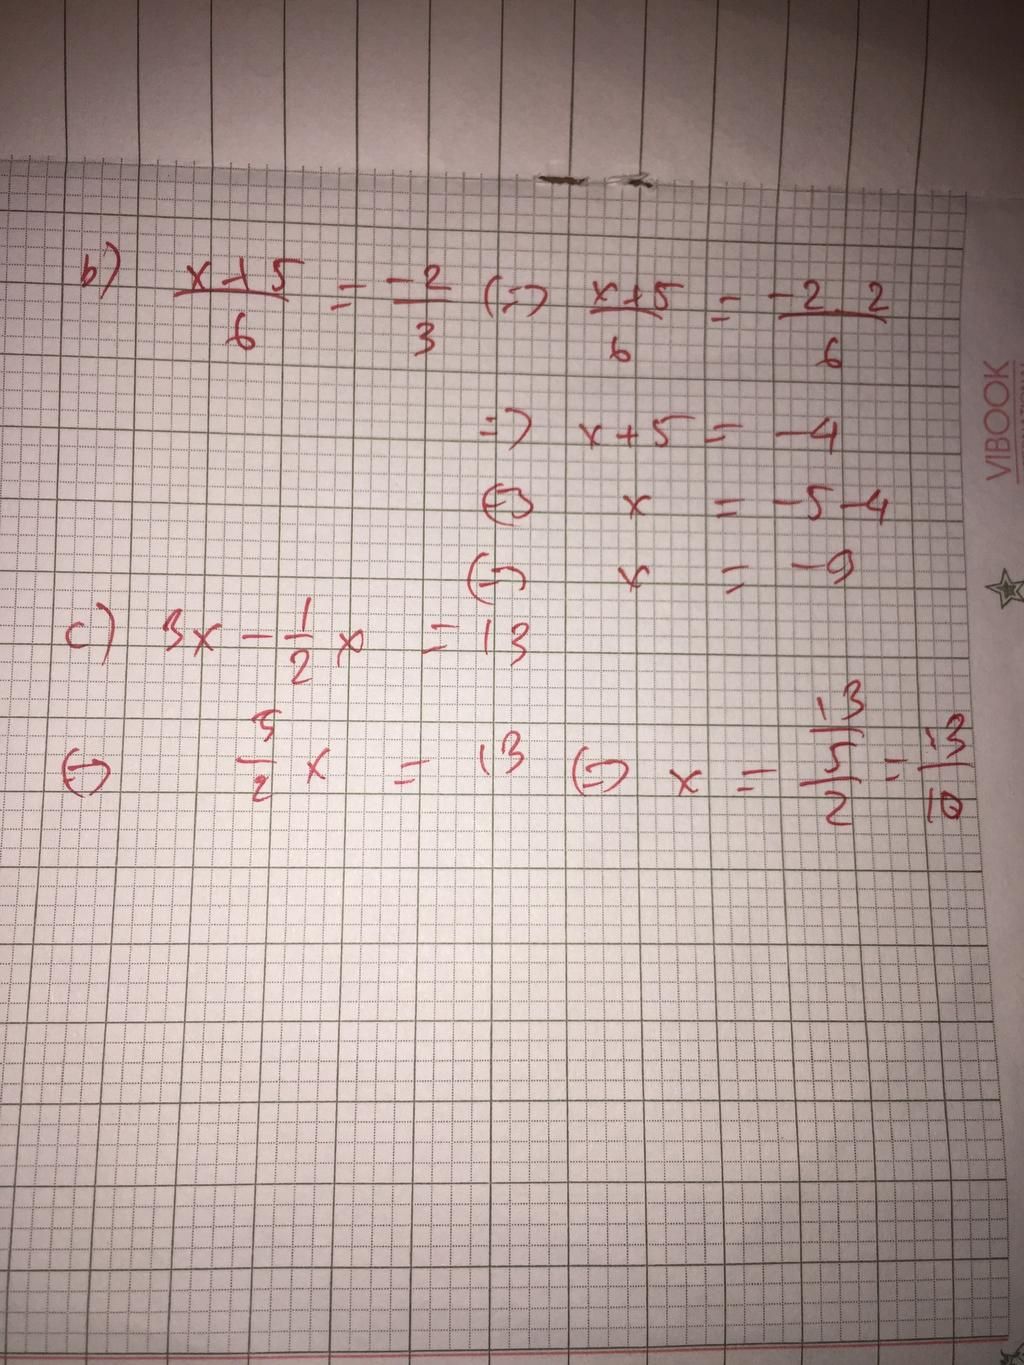 b) x+5/6 = -2/3 (=) x+5/6 = -2.2/6
=> x+5 = -4
(=) x = -5-4
(=) x = -9
c) 3x - 1/2 x = 13
(=) 5/2 x = 13 (=) x = 13/5/2 = 13/10
VIBOOK